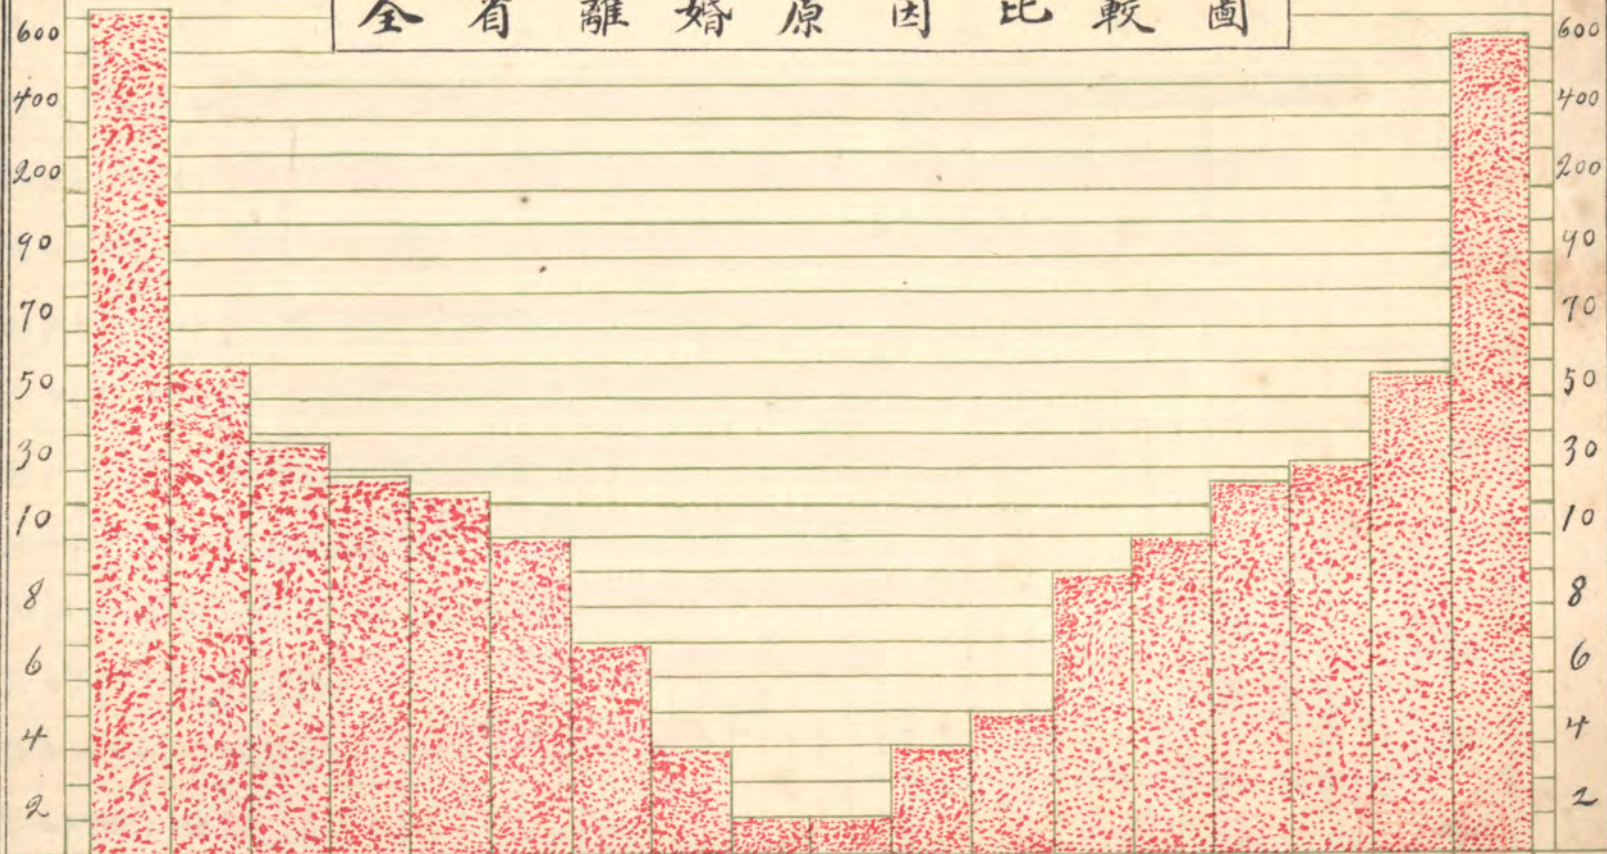 全省離婚原因比較圖
600
400
200
90
70
50
30
10
8
6
4
2
600
400
200
90
70
50
30
10
8
6
4
2